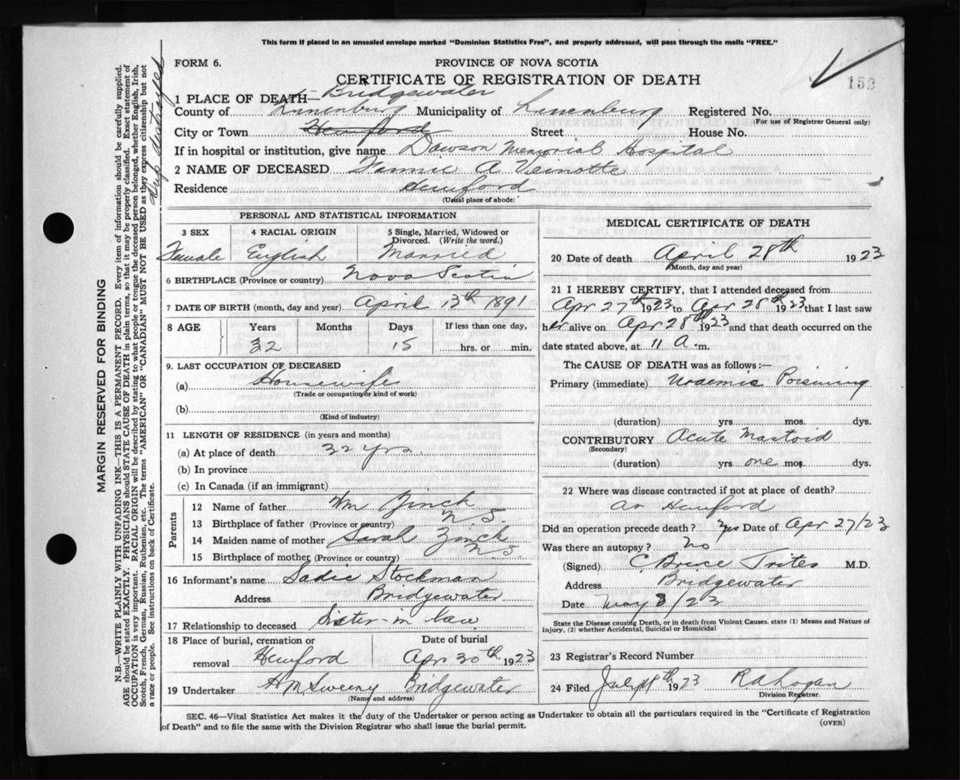 This form if placed in an unsealed envelope marked "Dominion Statistics Free", and properly addressed, will pass through the mails "FREE."
FORM 6.
PROVINCE OF NOVA SCOTIA
CERTIFICATE OF REGISTRATION OF DEATH
152
1 PLACE OF DEATH— Bridgewater
County of Lunenburg Municipality of Lunenburg Registered No.
(For use of Registrar General only)
City or Town Hemford Street House No.
If in hospital or institution, give name Dawson Memorial Hospital
2 NAME OF DECEASED Fannie A Veinotte
Residence Hemford
(Usual place of abode)
PERSONAL AND STATISTICAL INFORMATION
3 SEX 4 RACIAL ORIGIN 5 Single, Married, Widowed or Divorced. (Write the word.)
Female English Married
6 BIRTHPLACE (Province or country) Nova Scotia
7 DATE OF BIRTH (month, day and year) April 13th 1891
8 AGE Years Months Days If less than one day,
32 15 hrs. or min.
9. LAST OCCUPATION OF DECEASED
(a) Housewife
(Trade or occupation or kind of work)
(b)
(Kind of industry)
11 LENGTH OF RESIDENCE (in years and months)
(a) At place of death 32 yrs.
(b) In province
(c) In Canada (if an immigrant)
Parents
12 Name of father Wm Zinck
13 Birthplace of father (Province or country) N. S.
14 Maiden name of mother Sarah Zinck
15 Birthplace of mother (Province or country) N. S
16 Informant's name Sadie Stockman
Address Bridgewater
17 Relationship to deceased Sister-in law
18 Place of burial, cremation or removal Hemford
Date of burial Apr 30th 1923
19 Undertaker H M Sweeny Bridgewater
(Name and address)
MEDICAL CERTIFICATE OF DEATH
20 Date of death April 28th 1923
(Month, day and year)
21 I HEREBY CERTIFY, that I attended deceased from
Apr 27th 1923 to Apr 28th 1923 that I last saw
her alive on Apr 28th 1923 and that death occurred on
date stated above, at 11 A. m.
The CAUSE OF DEATH was as follows:—
Primary (immediate) Uraemis Poisining
(duration) yrs mos. dys.
CONTRIBUTORY Acute Mastoid
(Secondary)
(duration) yrs. one mos. dys.
22 Where was disease contracted if not at place of death?
At Hemford
Did an operation precede death? Yes Date of Apr 27/23
Was there an autopsy? No
(Signed) C Brice Trites M.D.
Address Bridgewater
Date May 8/23
State the Disease causing Death, or in death from Violent Causes, state (1) Means and Nature of Injury, (2) whether Accidental, Suicidal or Homicidal
23 Registrar's Record Number
24 Filed July 18th 1923 R A Logan
Division Registrar.
SEC. 46—Vital Statistics Act makes it the duty of the Undertaker or person acting as Undertaker to obtain all the particulars required in the "Certificate of Registration
of Death" and to file the same with the Division Registrar who shall issue the burial permit.
(OVER)
MARGIN RESERVED FOR BINDING
N.B.—WRITE PLAINLY WITH UNFADING INK—THIS IS A PERMANENT RECORD. Every item of information should be carefully supplied.
AGE should be stated EXACTLY. PHYSICIANS should STATE CAUSE OF DEATH in plain terms, so that it may be properly classified. Exact statement of
OCCUPATION is very important. RACIAL ORIGIN will be described by stating to what people or tongue the deceased person belonged, whether English, Irish,
Scotch, French, German, Russian, Ruthenian, etc. The terms "AMERICAN" OR "CANADIAN" MUST NOT BE USED as they express citizenship but not
a race or people. See instructions on back of Certificate.
Dup destroyed